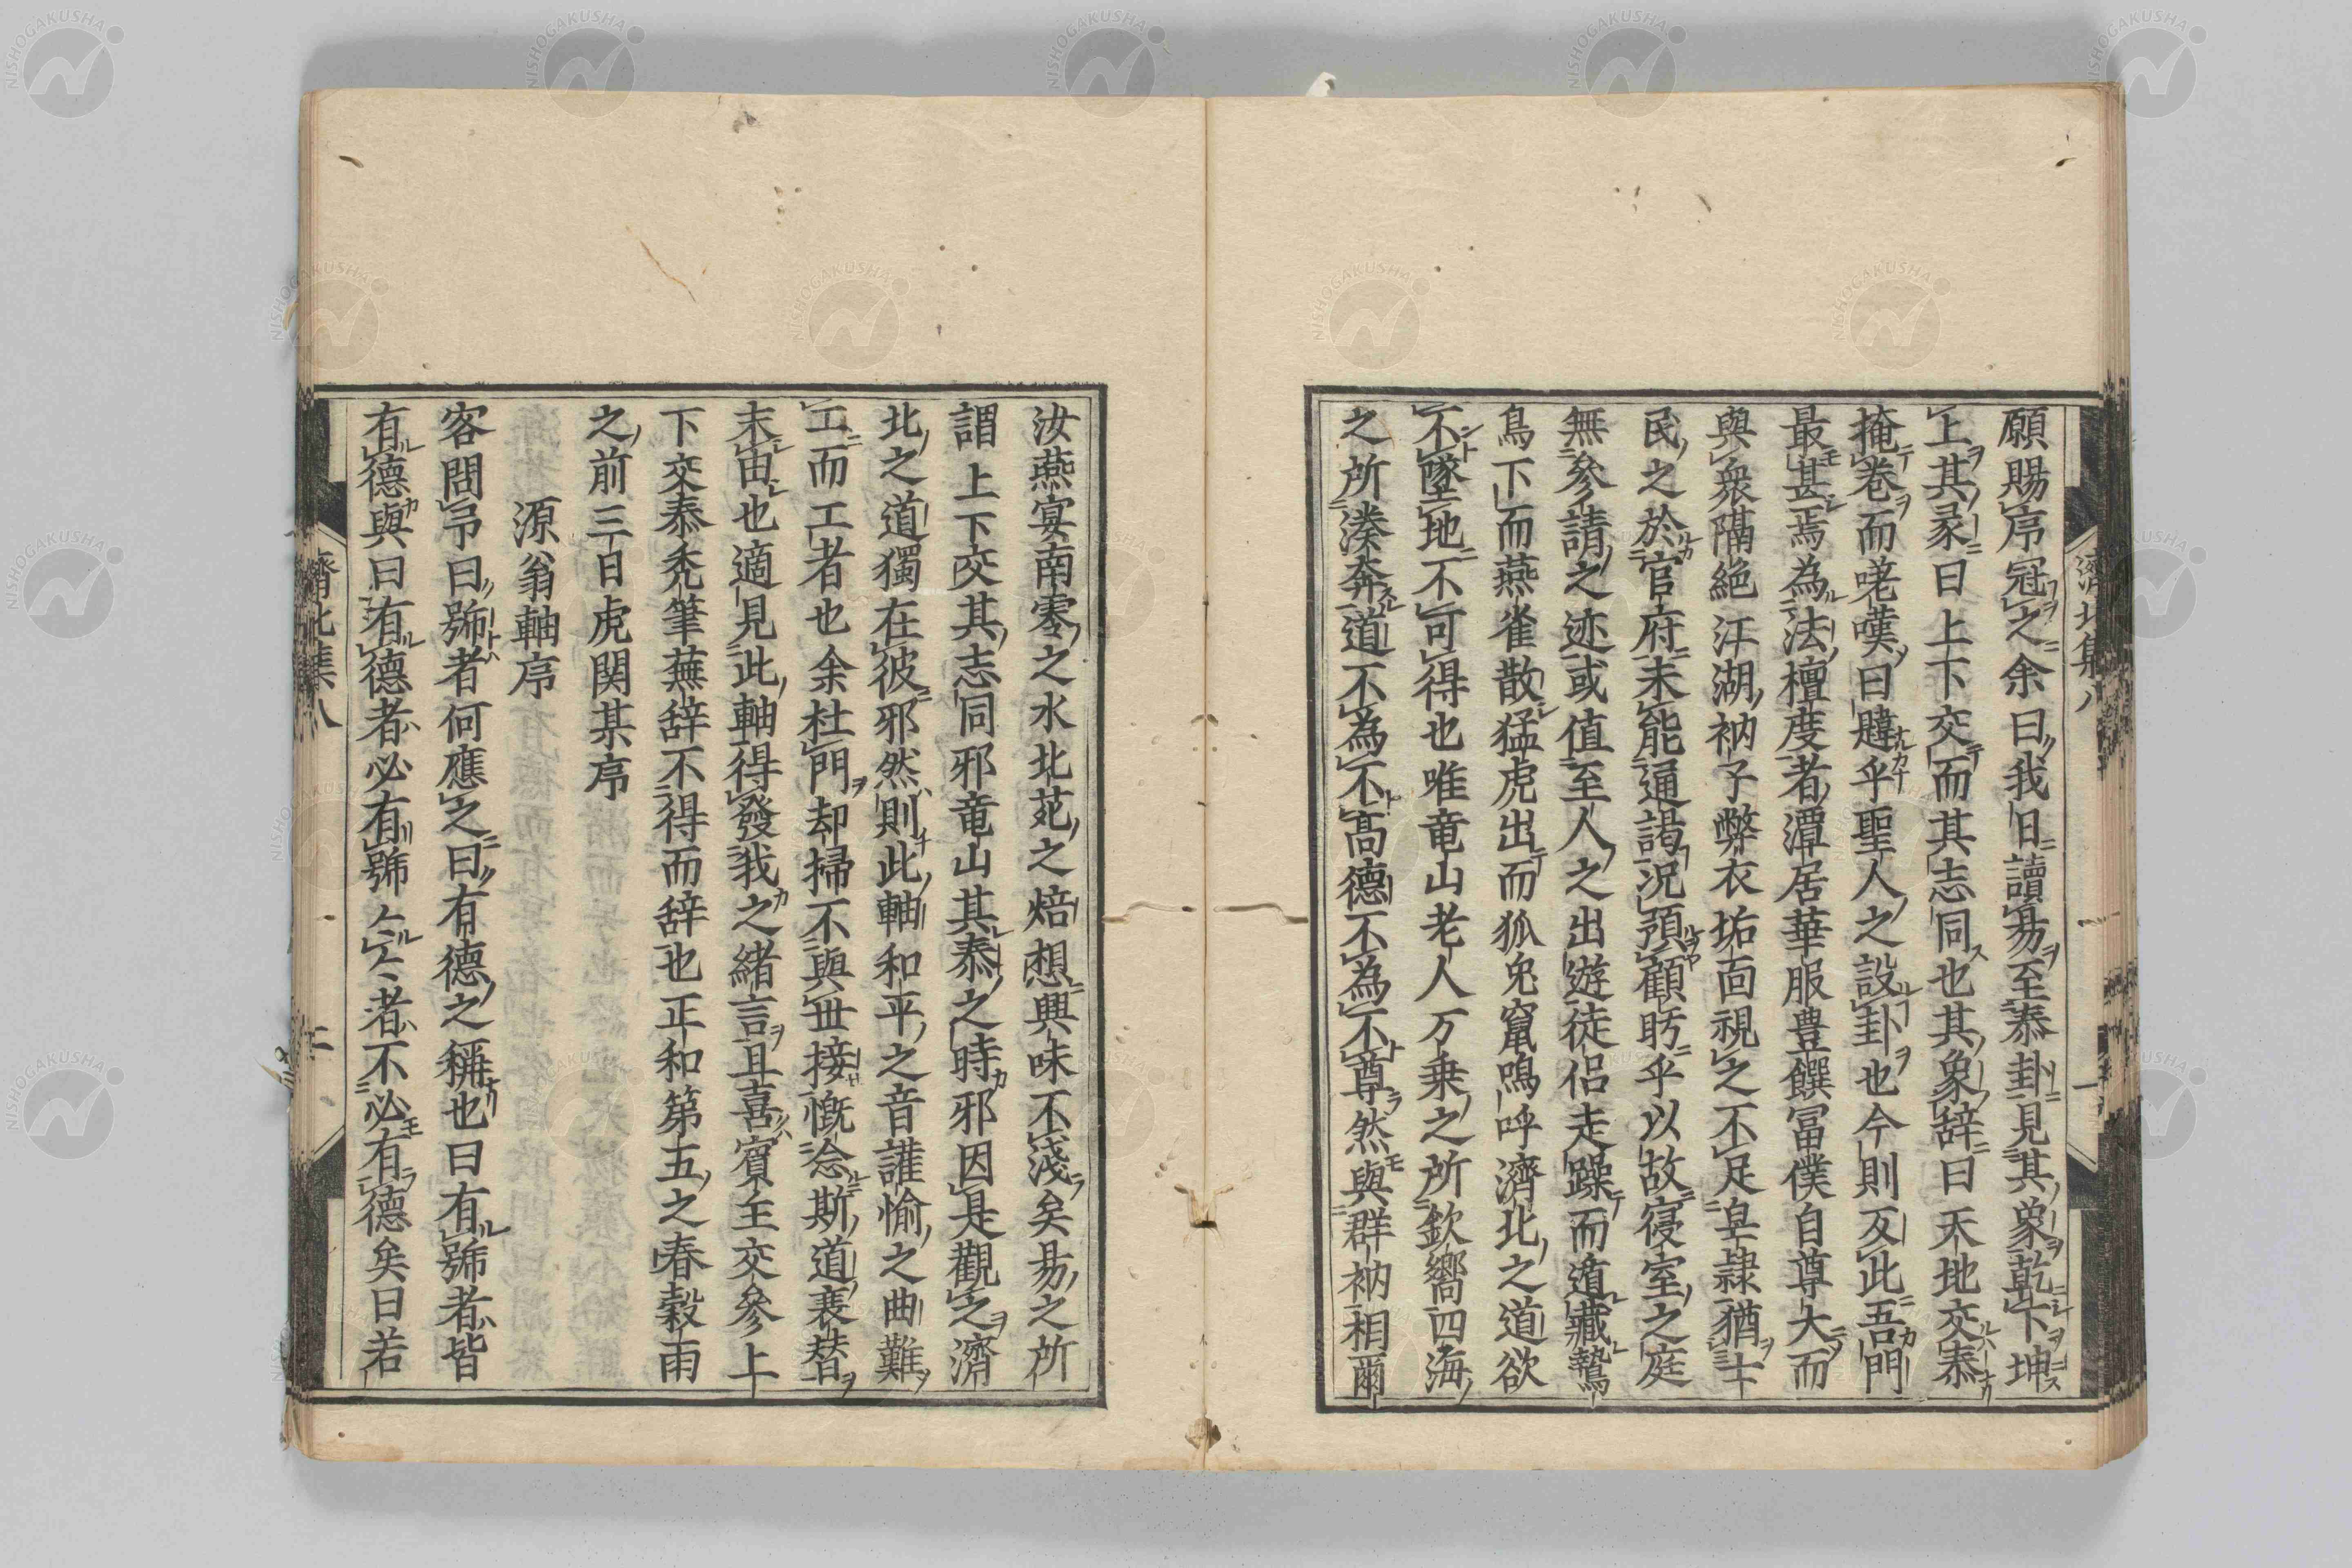 願賜序冠之余曰我旧讀易至泰卦見其象乾下坤
上其彖曰上下交而其志同也其象辞曰天地交泰
掩巻而嗟嘆曰韙乎聖人之設卦也今則反此吾門
最甚焉為法檀度者潭居華服豊饌冨僕自尊大而
與衆隔絶江湖衲子弊衣垢面視之不足皁隷猶士
民之於官府未能通謁况預顧眄乎以故寝室之庭
無參請之迹或值至人之出遊徒侣走躁而遁藏鷙
鳥下而燕雀散猛虎出而狐兔竄嗚呼濟北之道欲
不墜地不可得也唯竜山老人万乗之所欽嚮四海
之所湊奔道不為不高德不為不尊然與群衲相爾
汝燕宴南零之水北苑之焙想興味不淺矣易之所
謂上下交其志同邪竜山其泰之時邪因是觀之濟
北之道獨在彼邪然則此軸和平之音讙愉之曲難
工而工者也余杜門却掃不與世接慨念斯道衰替
末由也適見此軸得發我之緒言且喜賓主交參上
下交泰禿筆蕪辞不得而辞也正和第五之春穀雨
之前三日虎関某序
源翁軸序
客問予曰號者何應之曰有德之稱也曰有號者皆
有德與曰有德者必有號亽亽者不必有德矣曰若
濟北集八 一
濟北集八 二
NISHOGAKUSHA